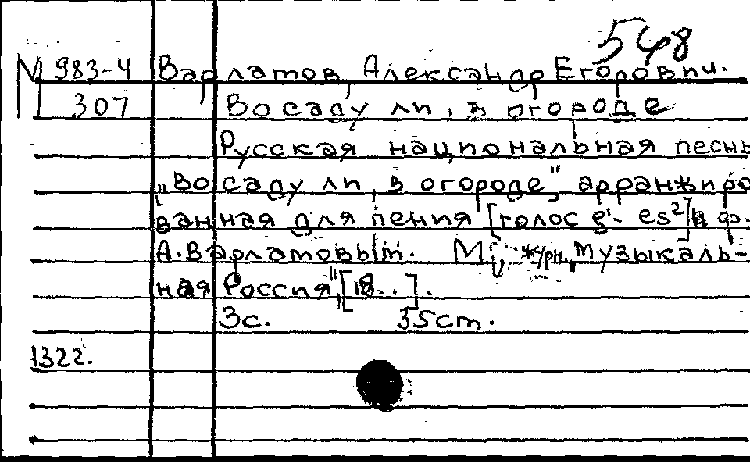 548
М 983-4 Варламов, Александр Егорович.
307 Во саду ли, в огороде
Русская национальная песнь
"Во саду ли, в огороде", арранжиро
ванная для пения [голос g'- es²] и ф.
А. Варламовым. М., журн. "Музыкаль-
ная Россия", [18..].
3с. 35cm.
1322.